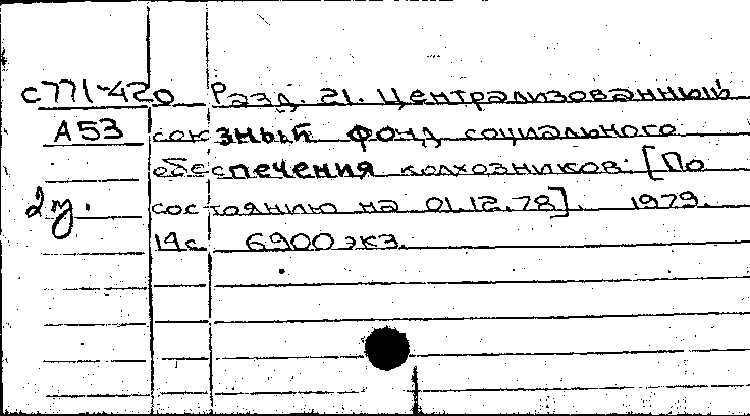 с771-420 Разд. 21. Централизованный
А53 союзный фонд социального
обеспечения колхозников: [По
2 состоянию на 01.12.78]. 1979.
14с. 6900 экз.